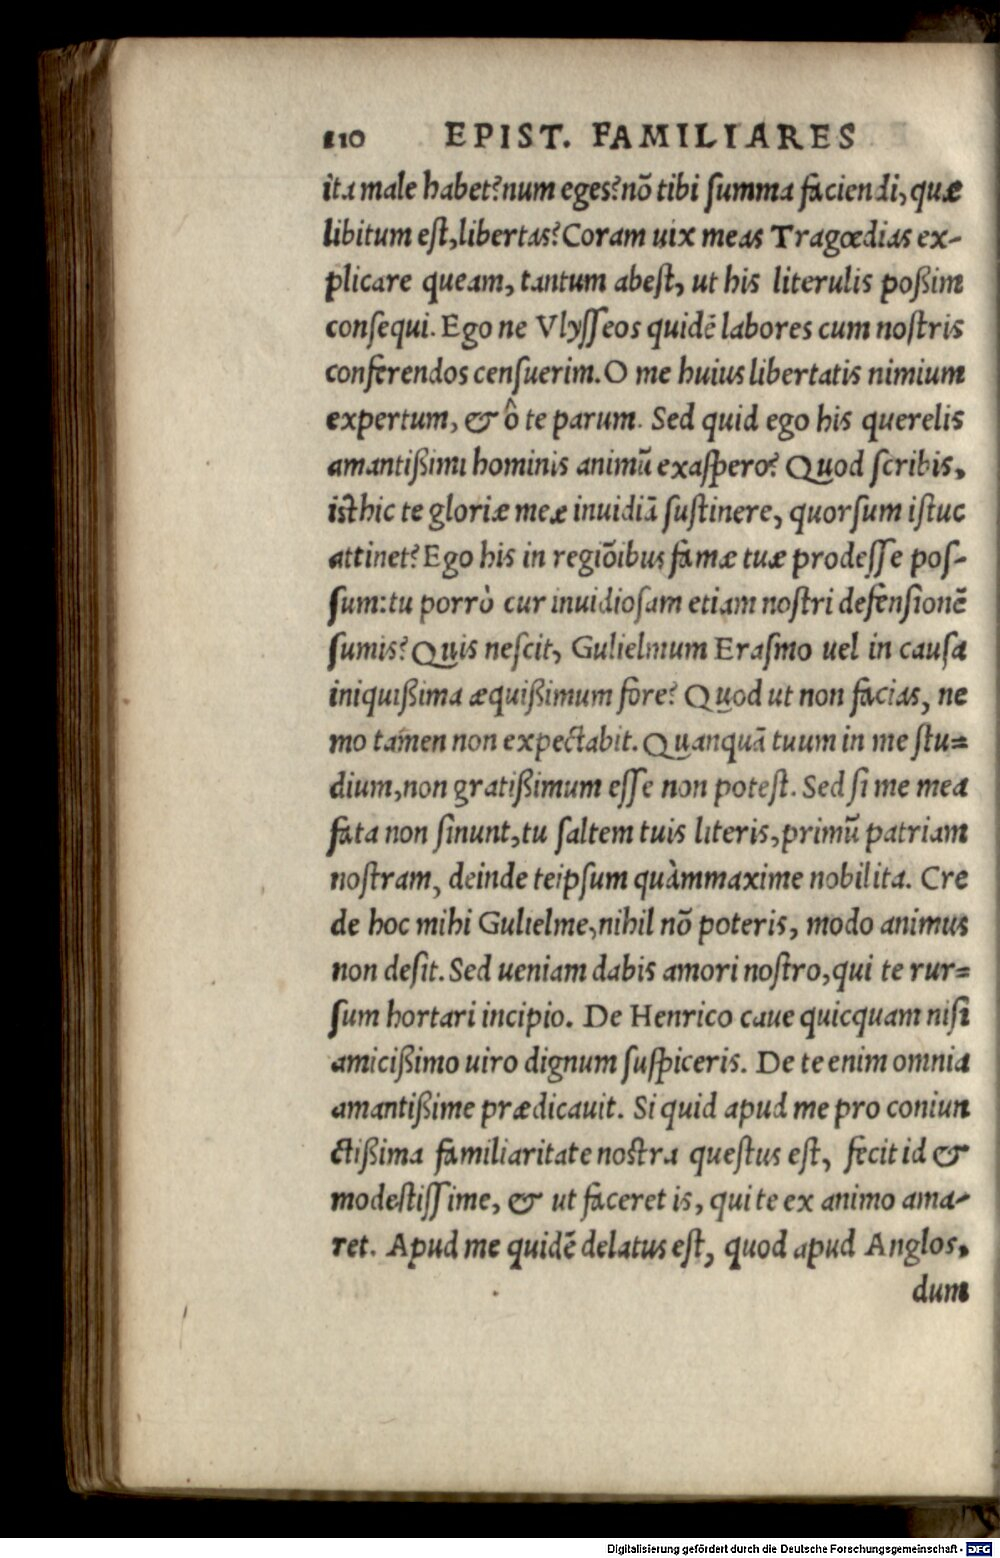 110 EPIST. FAMILIARES
ita male habet? num eges? nõ tibi ſumma faciendi, quæ
libitum eſt, libertas? Coram uix meas Tragœdias ex-
plicare queam, tantum abeſt, ut his literulis poßim
conſequi. Ego ne Vlyſſeos quidẽ labores cum noſtris
conferendos cenſuerim. O me huius libertatis nimium
expertum, & ô te parum. Sed quid ego his querelis
amantißimi hominis animũ exaſpero? Quod ſcribis,
iſthic te gloriæ meæ inuidiã ſuſtinere, quorſum iſtuc
attinet? Ego his in regiõibus famæ tuæ prodeſſe poſ-
ſum: tu porrò cur inuidioſam etiam noſtri defenſionẽ
ſumis? Quis neſcit, Gulielmum Eraſmo uel in cauſa
iniquißima æquißimum fore? Quod ut non facias, ne
mo tamen non expectabit. Quanquã tuum in me ſtu=
dium, non gratißimum eſſe non poteſt. Sed ſi me mea
fata non ſinunt, tu ſaltem tuis literis, primũ patriam
noſtram, deinde teipſum quàmmaxime nobilita. Cre
de hoc mihi Gulielme, nihil nõ poteris, modo animus
non deſit. Sed ueniam dabis amori noſtro, qui te rur=
ſum hortari incipio. De Henrico caue quicquam niſi
amicißimo uiro dignum ſuſpiceris. De te enim omnia
amantißime prædicauit. Si quid apud me pro coniun
ctißima familiaritate noſtra queſtus eſt, fecit id &
modeſtiſſime, & ut faceret is, qui te ex animo ama-
ret. Apud me quidẽ delatus eſt, quod apud Anglos,
dum
Digitalisierung gefördert durch die Deutsche Forschungsgemeinschaft - DFG